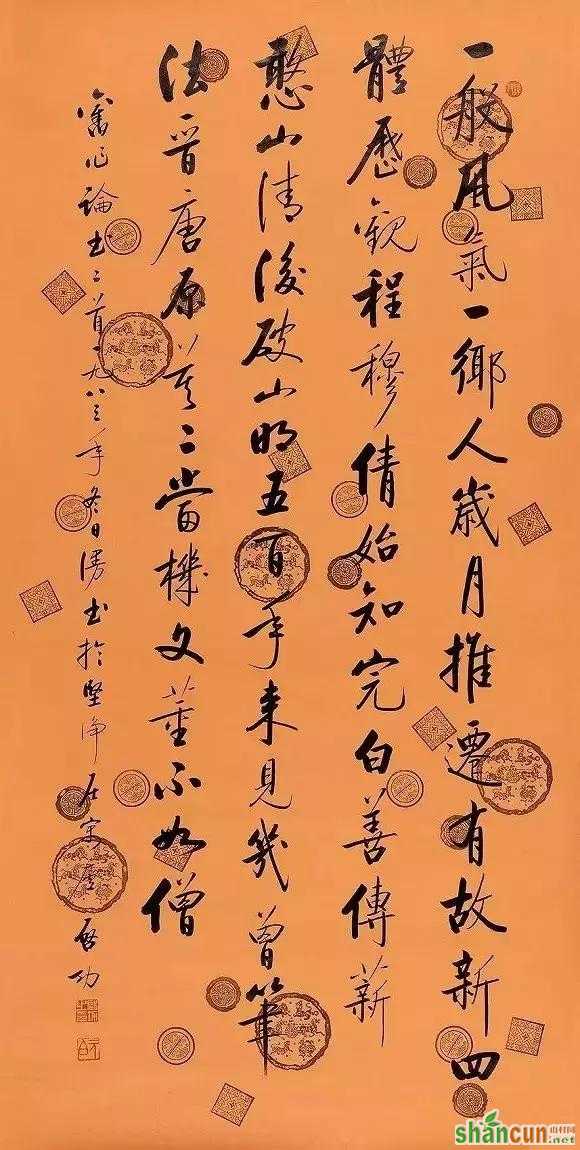 一般風氣一鄉人歲月推遷有故新四
體歷觀程穆倩始知完白善傳薪
憨山清後破山明五百年來見幾曾筆
法晉唐原莫二當機文董不如僧
舊作論書二首一九八三年冬日漫書於堅淨居寓廬 啟功
shancun
山村网
.net